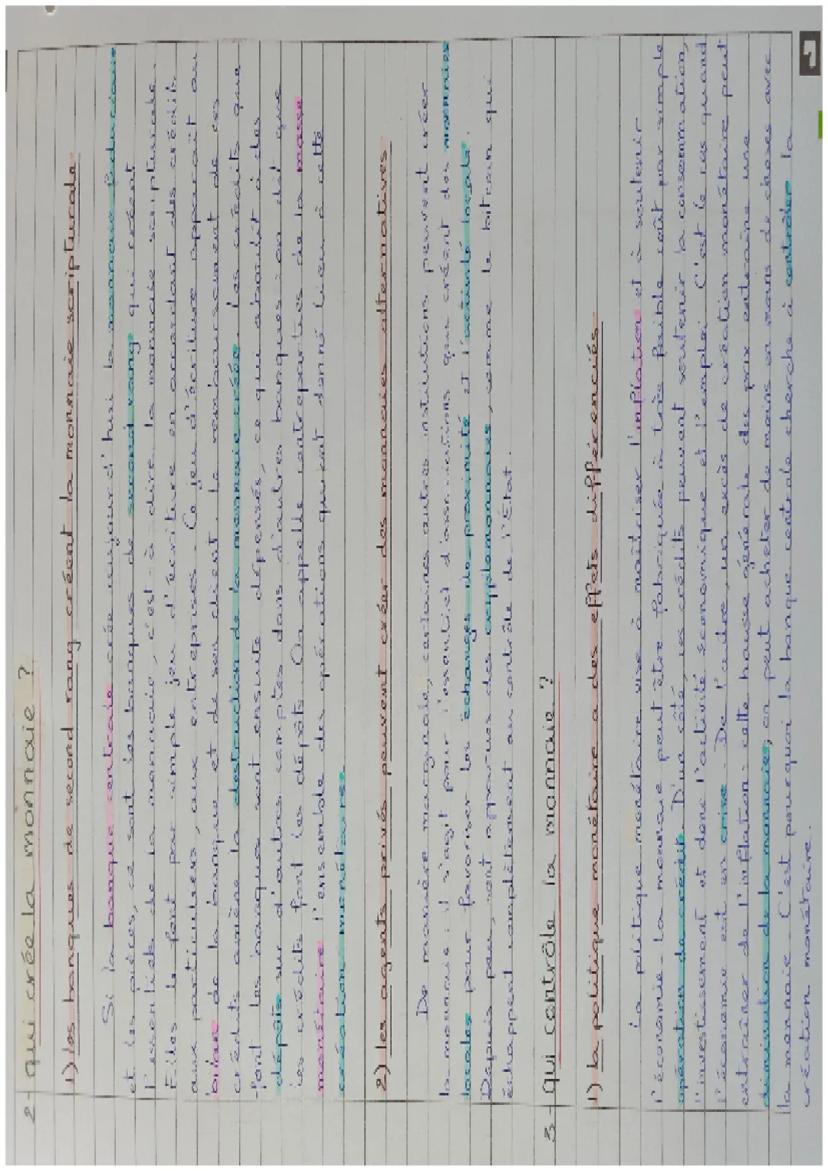 2 - qui crée la monnaie ?
1) les banques de second rang créent la monnaie scripturale.
Si la banque centrale crée aujourd'hui la monnaie fiduciaire
et les pièces, ce sont les banques de second rang qui créent
l'essentiel de la monnaie, c'est-à-dire la monnaie scripturale.
Elles le font par simple jeu d'écriture en accordant des crédits
aux particuliers, aux entreprises. Ce jeu d'écriture apparaît au
bilan de la banque et de son client. Le remboursement de ces
crédits amène la destruction de la monnaie créée. Les crédits que
font les banques sont ensuite dépensés, ce qui aboutit à des
dépôts sur d'autres comptes dans d'autres banques : on dit que
les crédits font les dépôts. On appelle contreparties de la masse
monétaire l'ensemble des opérations qui ont donné lieu à cette
création monétaire.
2) les agents privés peuvent créer des monnaies alternatives.
De manière marginale, certaines autres institutions peuvent créer
la monnaie : il s'agit pour l'essentiel d'associations que créent des monnaies
locales pour favoriser les échanges de proximité et l'activité locale.
Depuis peu, sont apparues des cryptomonnaies, comme le bitcoin qui
échappent complètement au contrôle de l'État.
3 - Qui contrôle la monnaie ?
1) la politique monétaire a des effets différenciés.
La politique monétaire vise à maîtriser l'inflation et à soutenir
l'économie. La monnaie peut être fabriquée à très faible coût par simple
opération de crédit. D'un côté, les crédits peuvent soutenir la consommation,
l'investissement et donc l'activité économique et l'emploi. C'est le cas quand
l'économie est en crise. De l'autre, un excès de création monétaire peut
entraîner de l'inflation : cette hausse générale des prix entraîne une
diminution de la monnaie, on peut acheter de moins en moins de choses avec
la monnaie. C'est pourquoi la banque centrale cherche à contrôler la
création monétaire.